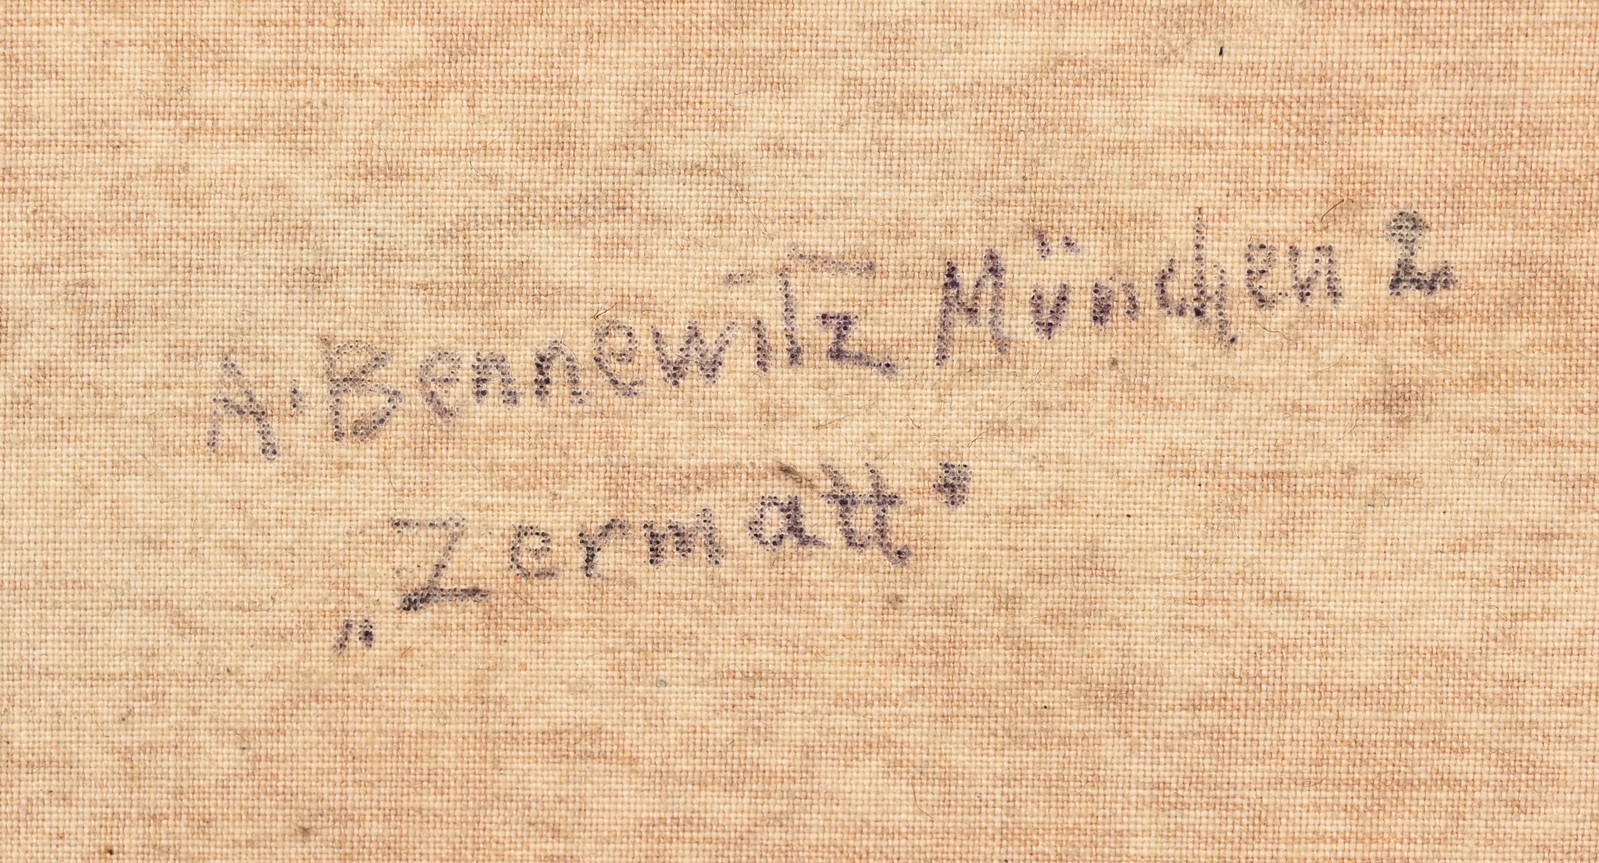 A. Bennewitz München 2
„Zermatt"